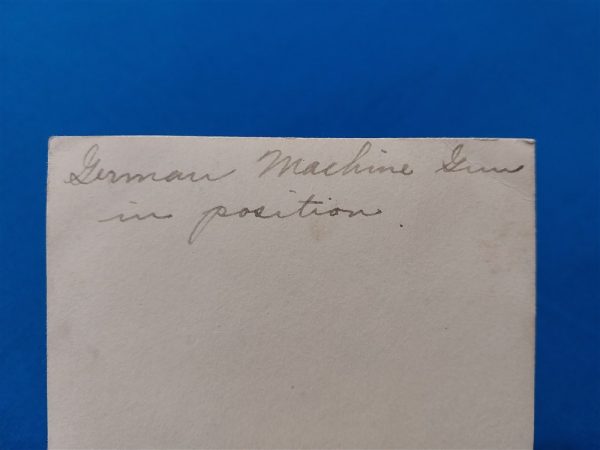 German Machine Gun
in position.